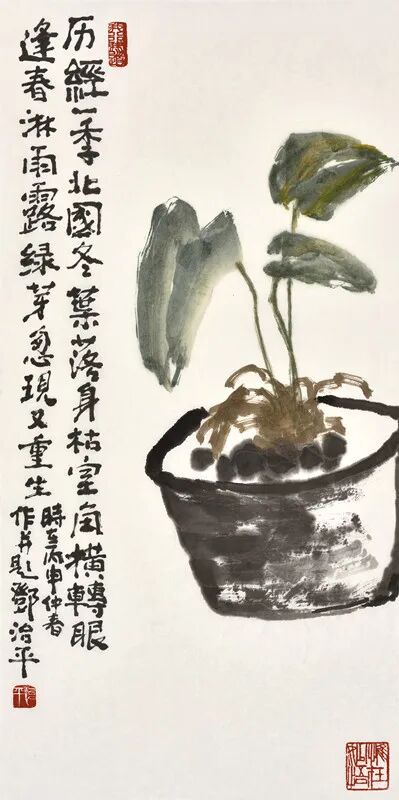 历經一季北國冬葉落身枯室角橫轉眼
逢春淋雨露绿芽忽現又重生
時在丙申仲春
作并题鄧治平